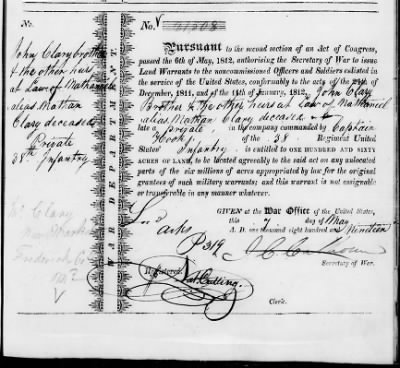 No.
No. 21508
John Clary brother
& the other heirs
at Law of Nathaniel
alias Nathan
Clary deceased
Private
38th Infantry
WAR DEPARTMENT.
Pursuant to the second section of an Act of Congress,
passed the 6th of May, 1812, authorising the Secretary of War to issue
Land Warrants to the noncommissioned Officers and Soldiers enlisted in
the service of the United States, conformably to the acts of the 24th
December, 1811, and the 11th of January, 1812, John Clary
Brother & the other heirs at Law of Nathaniel
alias Nathan Clary deceased
late a Private, in the company commanded by Captain
Hook, of the 38 Regiment United
States' Infantry, is entitled to ONE HUNDRED AND SIXTY
ACRES OF LAND, to be located agreeably to the said act on any unlocated
parts of the six millions of acres appropriated by law for the original
grantees of such military warrants; and this warrant is not assignable
or transferable in any manner whatever.
GIVEN at the War Office of the United States,
this 7 day of May
A. D. one thousand eight hundred and Nineteen
P 319
J. C. Calhoun
Secretary of War.
Registered
Nat Cutting.
Clerk.
Clary
Frederick